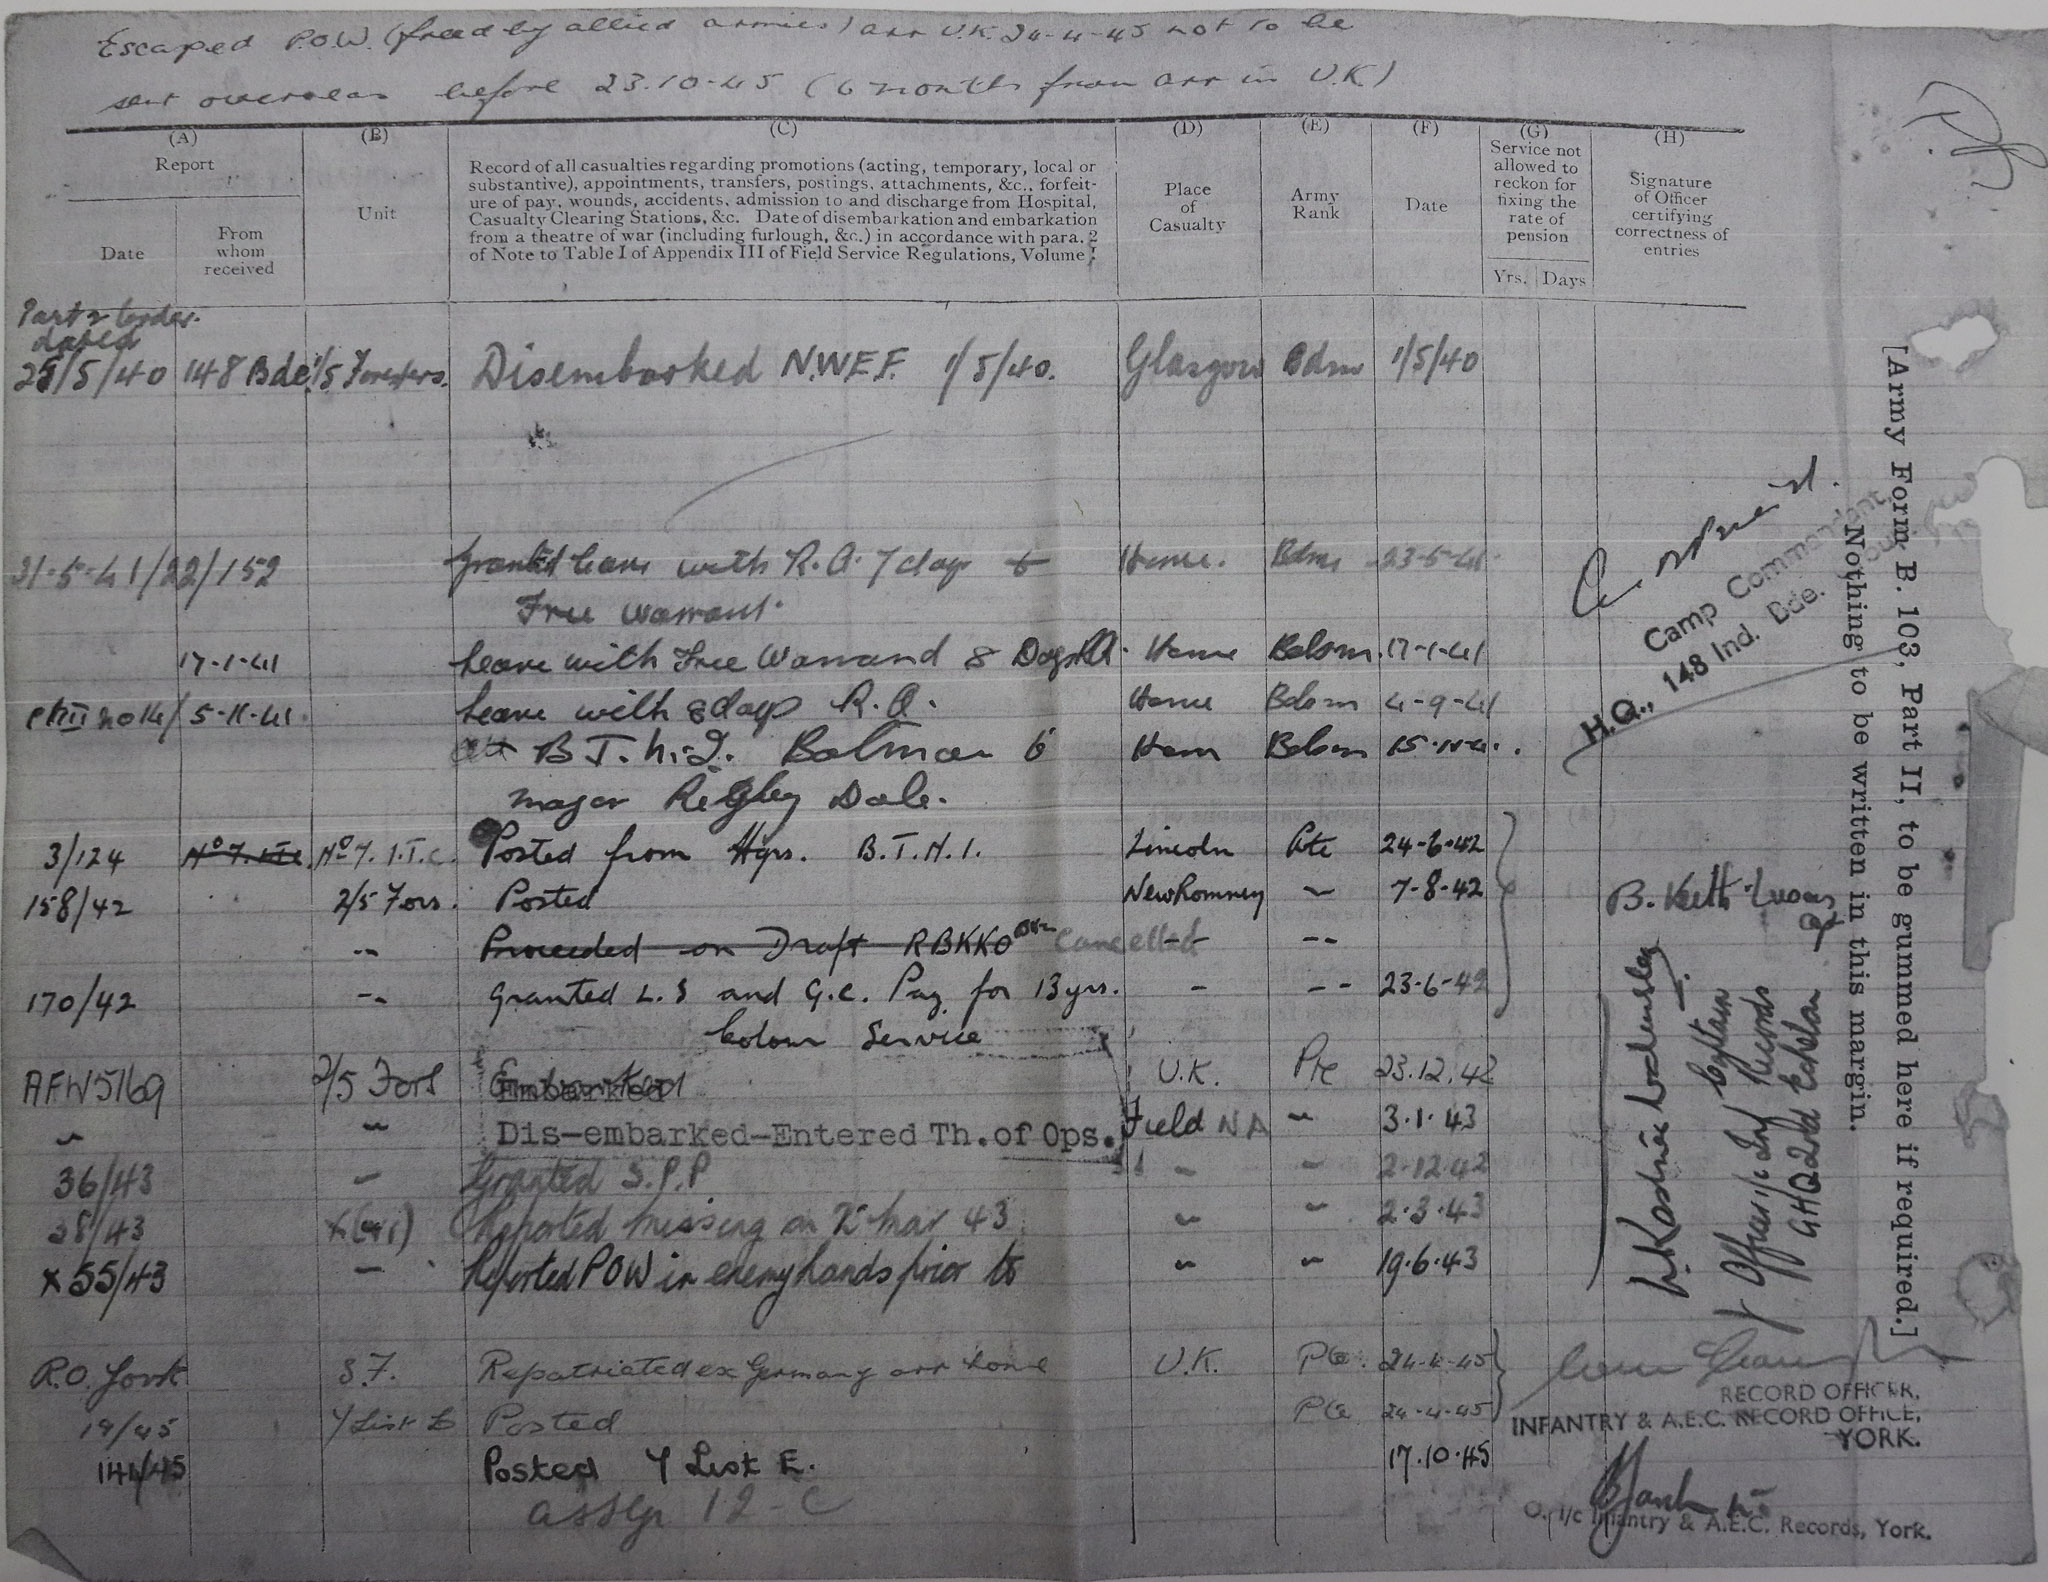 Escaped P.O.W. (freed by allied armies) arr U.K. 24-4-45 not to be
sent overseas before 23.10-45 (6 months from arr in U.K)
(A) (B) (C) (D) (E) (F) (G) (H)
Report
Date
From whom received
Unit
Record of all casualties regarding promotions (acting, temporary, local or
substantive), appointments, transfers, postings, attachments, &c., forfeit-
ure of pay, wounds, accidents, admission to and discharge from Hospital,
Casualty Clearing Stations, &c. Date of disembarkation and embarkation
from a theatre of war (including furlough, &c.) in accordance with para. 2
of Note to Table I of Appendix III of Field Service Regulations, Volume I.
Place of Casualty
Army Rank
Date
Service not allowed to reckon for fixing the rate of pension
Yrs. Days
Signature of Officer certifying correctness of entries
Part 2 order
dated
25/5/40 148 Bde 1/5 Foresters. Disembarked N.W.E.F. 1/5/40. Glasgow Bdm 1/5/40
31-5-41/22/152 Granted leave with R.A. 7 days & Home. Bdm 23-5-41
Free Warrant.
17-1-41 Leave with Free Warrand 8 Days RA. Home Bdsm. 17-1-41
5-11-41. Leave with 8 days R.A. Home Bdsm 4-9-41
att B.T.H.Q. Batman to Hom Bdsm
Major Regley Dale.
3/124 No 7. I.T.C. No 7. I.T.C. Posted from Hqrs. B.T.N.I. Lincoln Pte 24-6-42
158/42 2/5 Fors. Posted New Romney – 7-8-42
-- Proceeded on Draft RBKKO cancelled -- --
170/42 -- Granted L.S and G.C. Pay for 13 yrs. - -- 23-6-42
Colour Service
AFW5169 2/5 Fors Embarked U.K. Pte 23.12.42
~ ~ Dis-embarked-Entered Th. of Ops. Field NA ~ 3.1.43
36/43 – Granted S.P.P ~ ~ 2.12.42
38/43 Reported missing on 2 Mar 43 ~ ~ 2.3.43
x 55/43 – Reported POW in enemy hands prior to ~ ~ 19.6.43
R.O. York S.F. Repatriated ex Germany arr home U.K. Pte. 24-4-45
19/45 Y List Posted Pte 24-4-45
144/45 Posted Y List E. 17.10.45
12-C
Camp Commandant,
H.Q., 148 Ind. Bde. Group
B. Keith-Lucas
Capt
Captain
Officer i/c Inf Records
GHQ 2nd Echelon
RECORD OFFICER,
INFANTRY & A.E.C. RECORD OFFICE,
YORK.
O. i/c Infantry & A.E.C. Records, York.
[Army Form B. 103, Part II, to be gummed here if required.]
Nothing to be written in this margin.